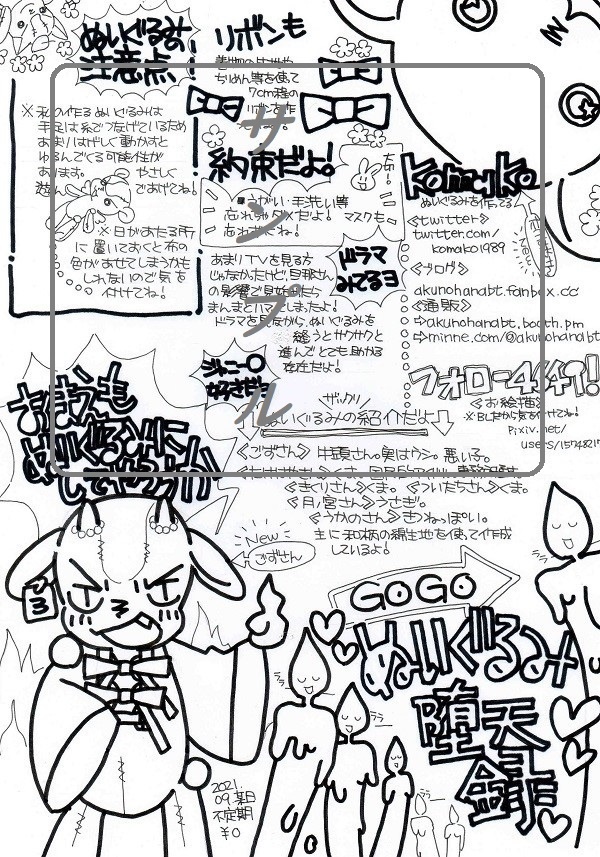 ぬいぐるみの
注意点!
※私の作るぬいぐるみは
手足は糸でつなげているため
あまりはげしく動かすと
ゆるんでくる可能性が
あります。 やさしく
遊んであげてね!
※日があたる所
に置いておくと布の
色があせてしまうかも
しれないので気を
付けてね!
リボンも
ちりめん等を使て
7cm程の
リボンを作
約束だよ!
うがい・手洗い等
忘れちゃダメだよ! マスクも
忘れずにね!
ドラマ
みてるヨ
あまりTVを見る方
じゃなかったけど旦那さん
の影響で見始めたら
まんまとハマてしまったよ!
ドラマを見ながら、ぬいぐるみを
縫うとサクサクと
進んでとても助かる
存在だよ!
ジャニー〇
好きだヨ
komako
ぬいぐるみを作ってる
≪twitter≫
twitter.com/
komako1989
≪ブログ≫
akunohanabt.fanbox.cc
≪通販≫
⇨akunohanabt.booth.pm
⇨minne.com/@akunohanabt
フォロー4649!
≪お絵描≫
※BLだから気を付けてね!
pixiv.net/
users/15748215
サンプル
おまえも
ぬいぐるみに
してやろうか
ザックリ
ぬいぐるみの紹介だよ
≪ごずさん≫ 牛頭さん。実はウシ。悪い子。
≪きくりさん≫くま。 ≪ついたちさん≫くま。
≪月ノ宮さん≫うさぎ。
≪うかのさん≫きつねっぽい。
主に和柄の綿生地を使って作成
しているよ!
New
ごずさん
GOGO
ぬいぐるみ
堕天
録
2021.
09.某日
不定期
¥0